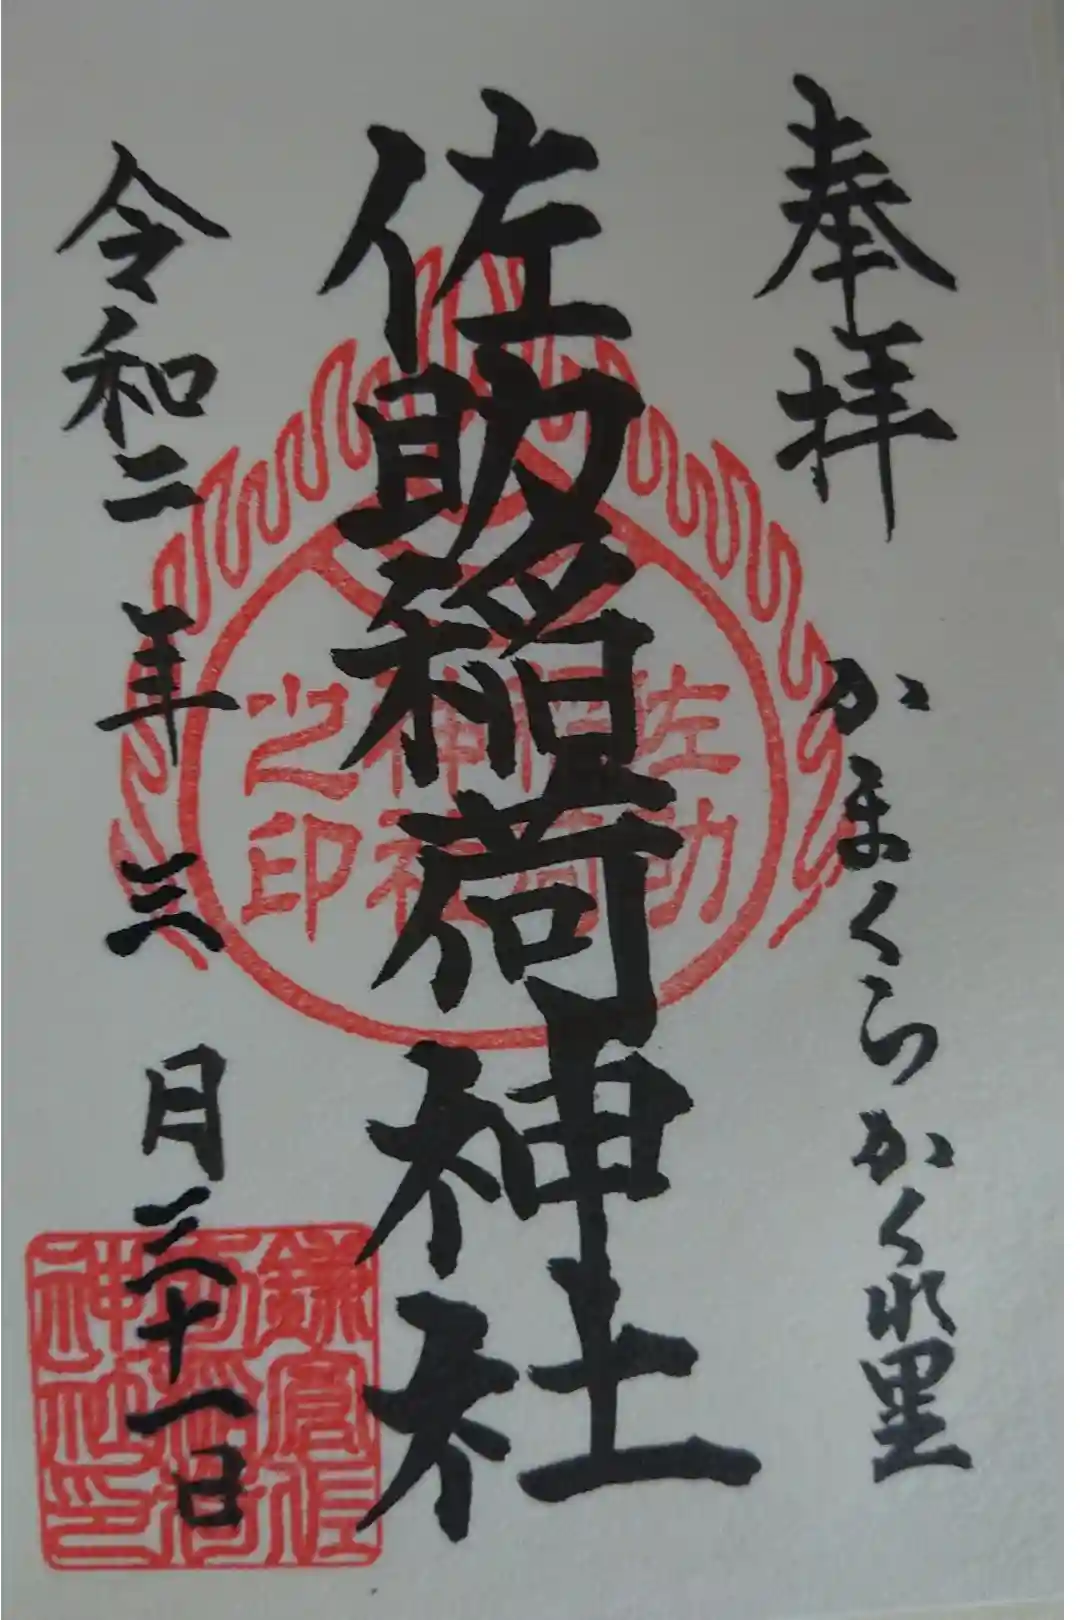 奉拝
かまくらかくれ里
佐助稲荷神社
令和二年三月三十一日
佐助
稲荷
神社
之印
鎌倉佐
助稲荷
神社印